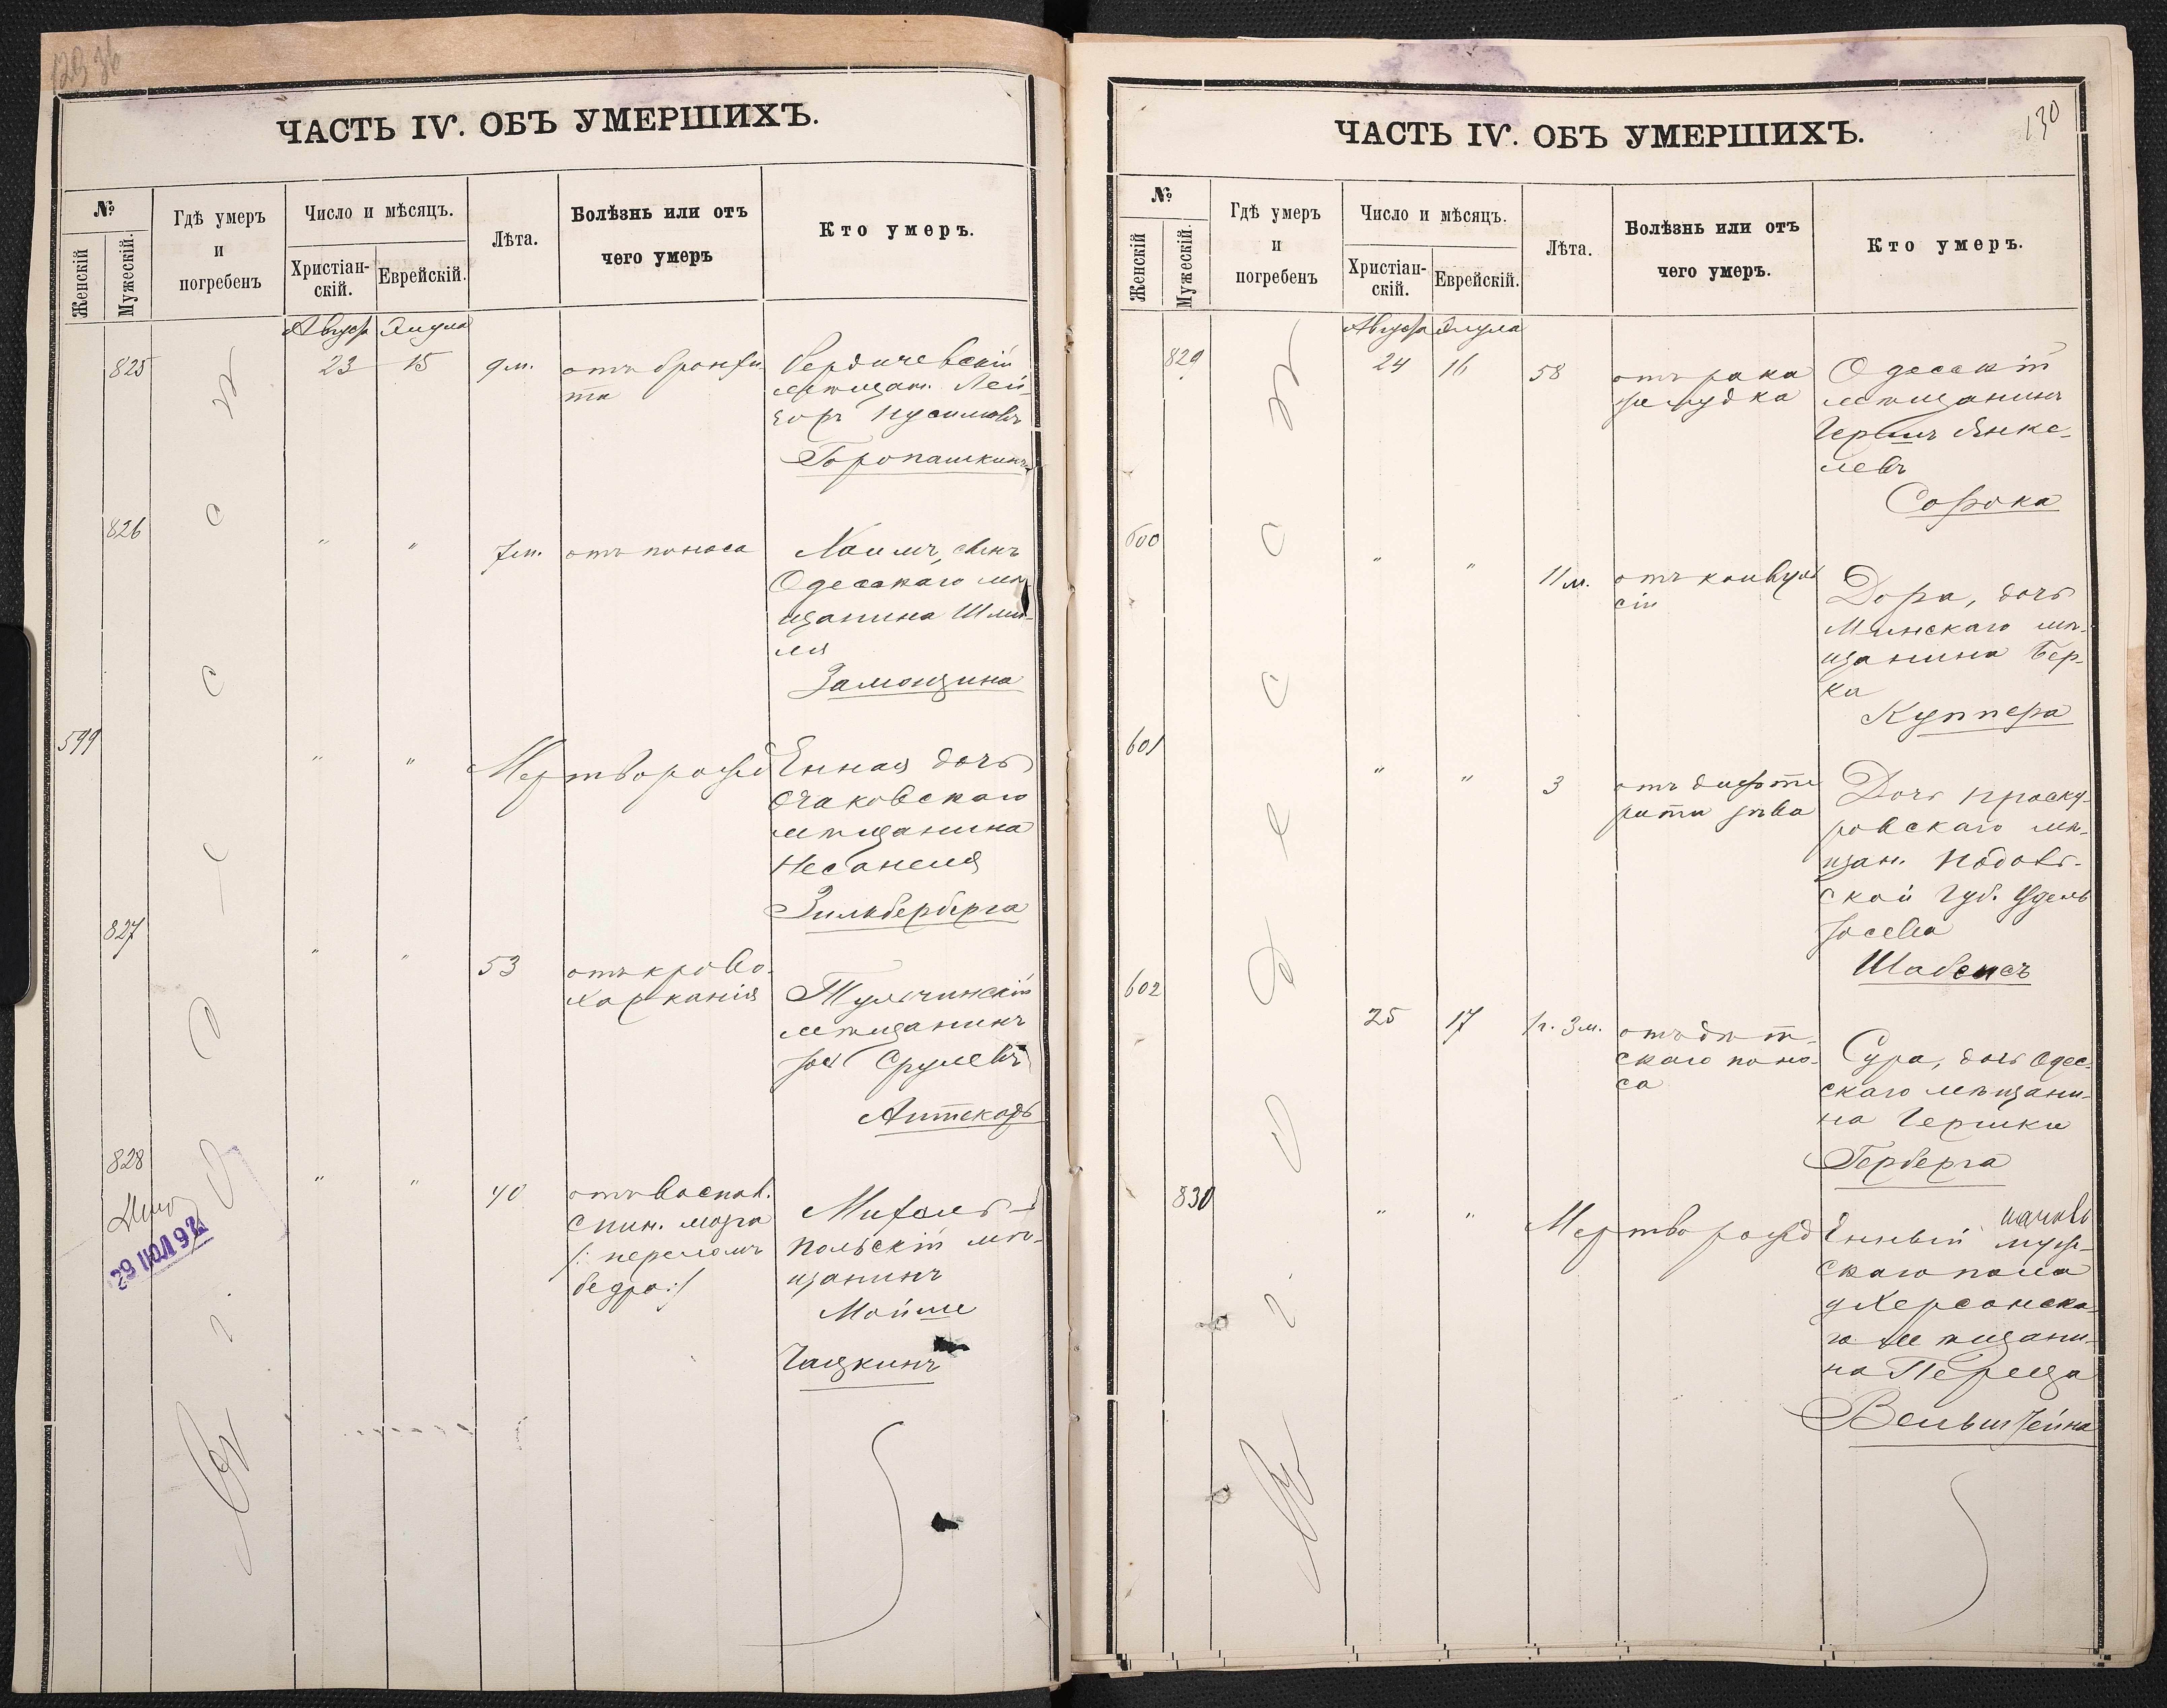 ЧАСТЬ IV. ОБЪ УМЕРШИХЪ.
№
Женскій
Мужескій.
Гдѣ умеръ
и
погребенъ
Число и мѣсяцъ.
Христіан-
скій.
Еврейскій.
Лѣта.
Болѣзнь или отъ
чего умеръ
Кто умеръ.
Августа Элула
825
23 15 9 м. отъ бронхи
та
Бердичевскій
мѣщан. Лей-
зоръ
Горопашкинъ
826
" " 7 м. отъ поноса
Хаимъ, сынъ
Одесскаго мѣ
щанина Шми-
ля
Замонщина
599
" " Мертворожденная дочь
Очаковскаго
мѣщанина
Несанеля
Зильберберга
827
" " 53 отъ крово-
харканія
Тульчинскій
мѣщанинъ
Іос Срулевъ
Аптекарь
828
" " 40 отъ воспал.
спин. мозга
/: переломъ
бедра :/
польскій мѣ-
щанинъ
Мойше
Гацкинъ
29 ІЮЛ 92
въ г. Одессѣ
ЧАСТЬ IV. ОБЪ УМЕРШИХЪ.
130
№
Женскій
Мужескій.
Гдѣ умеръ
и
погребенъ
Число и мѣсяцъ.
Христіан-
скій.
Еврейскій.
Лѣта.
Болѣзнь или отъ
чего умеръ.
Кто умеръ.
Августа Элула
829
24 16 58 отъ рака
желудка
Одесскій
мѣщанинъ
Гершъ Янке-
левъ
Сорока
600
" " 11 м. отъ конвуль
сіи
Дора, дочь
Минскаго мѣ-
щанина Бер-
ка
Куппера
601
" " 3 отъ дифте
рита зѣва
Дочь Проску-
ровскаго мѣ-
щан. Подоль-
ской губ. Удель
Іосева
Шабсисъ
602
25 17 1 г. 3 м. отъ дѣт-
скаго поно-
са
Сура, дочь Одес-
скаго мѣщани-
на Гершки
Герберга
830
" " Мертворожденный муж-
скаго пола
у Херсонска-
го мѣщани-
на Переца
Вельштейна
въ г. Одессѣ